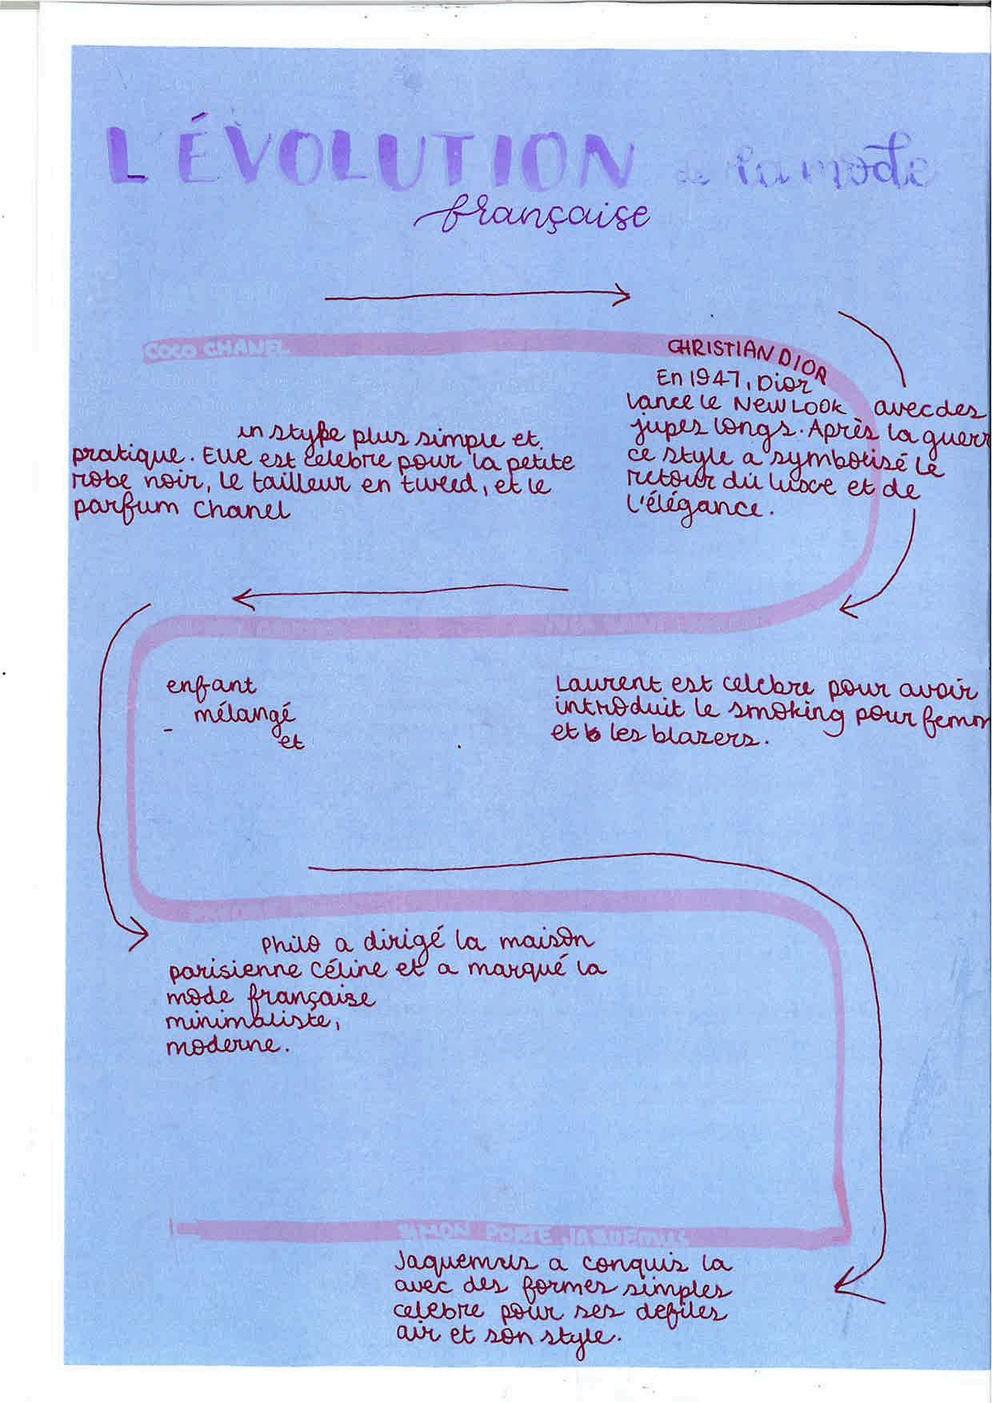 L'ÉVOLUTION de la mode
française
COCO CHANEL
un style plus simple et
pratique. Elle est célebre pour la petite
robe noir, le tailleur en tweed, et le
parfum Chanel
CHRISTIAN DIOR
En 1947, Dior
lance le New Look avec des
jupes longs. Après la guerr
ce style a symbolisé le
retour du luxe et de
l'élégance.
enfant
mélangé
et
Laurent est celebre pour avoir
introduit le smoking pour femm
et les blazers.
Philo a dirigé la maison
parisienne Céline et a marqué la
mode française
minimaliste,
moderne.
SIMON PORTE JAQUEMUS
Jaquemus a conquis la
avec des formes simples
celebre pour ses defiles
air et son style.